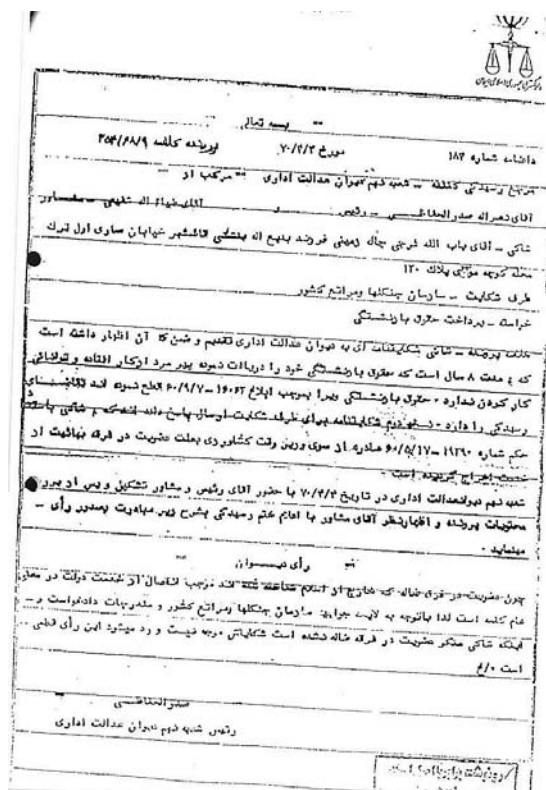 دادگستری جمهوری اسلامی ایران
بسمه تعالی
دادنامه شماره ۱۸۳ مورخ ۷۰/۴/۳ پرونده کلاسه ۲۵۴/۶۸/۹
مرجع رسیدگی کننده – شعبه نهم دیوان عدالت اداری مرکب از
آقای نصراله صدرالحفاظی – رئیس و آقای ضیاء اله نفیسی – مشاور
شاکی – آقای باب الله فرجی چال زمینی فرزند بدیع اله قائمشهر خیابان ساری اول ترک
محله کوچه پلاک ۱۲۰
طرف شکایت – سازمان جنگلها ومراتع کشور
خواسته – پرداخت حقوق بازنشستگی
پرونده – شاکی شکایتنامه ای به دیوان عدالت اداری تقدیم و ضمن آن اظهار داشته است
که مدت ۸ سال است که حقوق بازنشستگی خود را دریافت نموده پیر مرد ازکار افتاده و توانائی
کار کردن ندارد حقوق بازنشستگی ویرا بموجب ابلاغ ۱۶۰۶۲ – ۶۰/۹/۷ قطع نموده اند تقاضای
رسیدگی را دارد نسخه دوم شکایتنامه برای طرف شکایت ارسال پاسخ داده اند که شاکی باستناد
حکم شماره ۱۹۲۹۰ – ۶۰/۵/۱۷ صادره از سوی وزیر وقت کشاورزی بعلت عضویت در فرقه بهائیت از
خدمت اخراج گردیده است
شعبه نهم دیوانعدالت اداری در تاریخ ۷۰/۴/۳ با حضور آقای رئیس و مشاور تشکیل و پس از بررسی
محتویات پرونده و اظهارنظر آقای مشاور با اعلام ختم رسیدگی بشرح زیر مبادرت بصدور رأی –
مینماید .
رأی دیوان
چون عضویت در فرق ضاله که خارج از اسلام شناخته شده اند موجب انفصال از خدمت دولت در معنای
عام کلمه است لذا باتوجه به لایحه جوابیه سازمان جنگلها ومراتع کشور و مندرجات دادخواست و –
اینکه شاکی منکر عضویت در فرقه ضاله نشده است شکایتش موجه نیست و رد میشود این رأی قطعی
است
صدرالحفاظی
رئیس شعبه نهم دیوان عدالت اداری
رونوشت برابر با اصل است